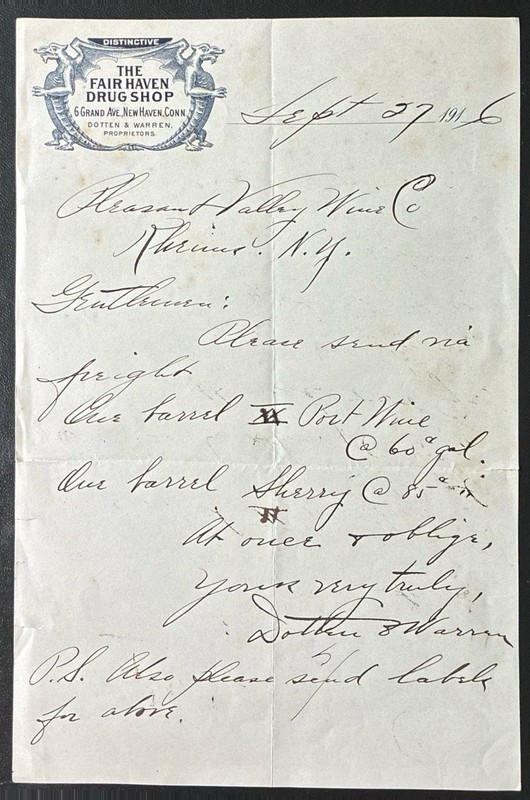 DISTINCTIVE
THE
FAIR HAVEN
DRUG SHOP
6 GRAND AVE., NEW HAVEN, CONN.
DOTTEN & WARREN,
PROPRIETORS.
Sept 27 1916
Pleasant Valley Wine Co
Rheims. N.Y.
Gentlemen:
Please send via
freight
One barrel XX Port Wine
@ 60¢ gal.
One barrel Sherry @ 85¢ "
XX
At once & oblige,
Yours very truly,
Dotten & Warren
P.S. Also please send labels
for above.